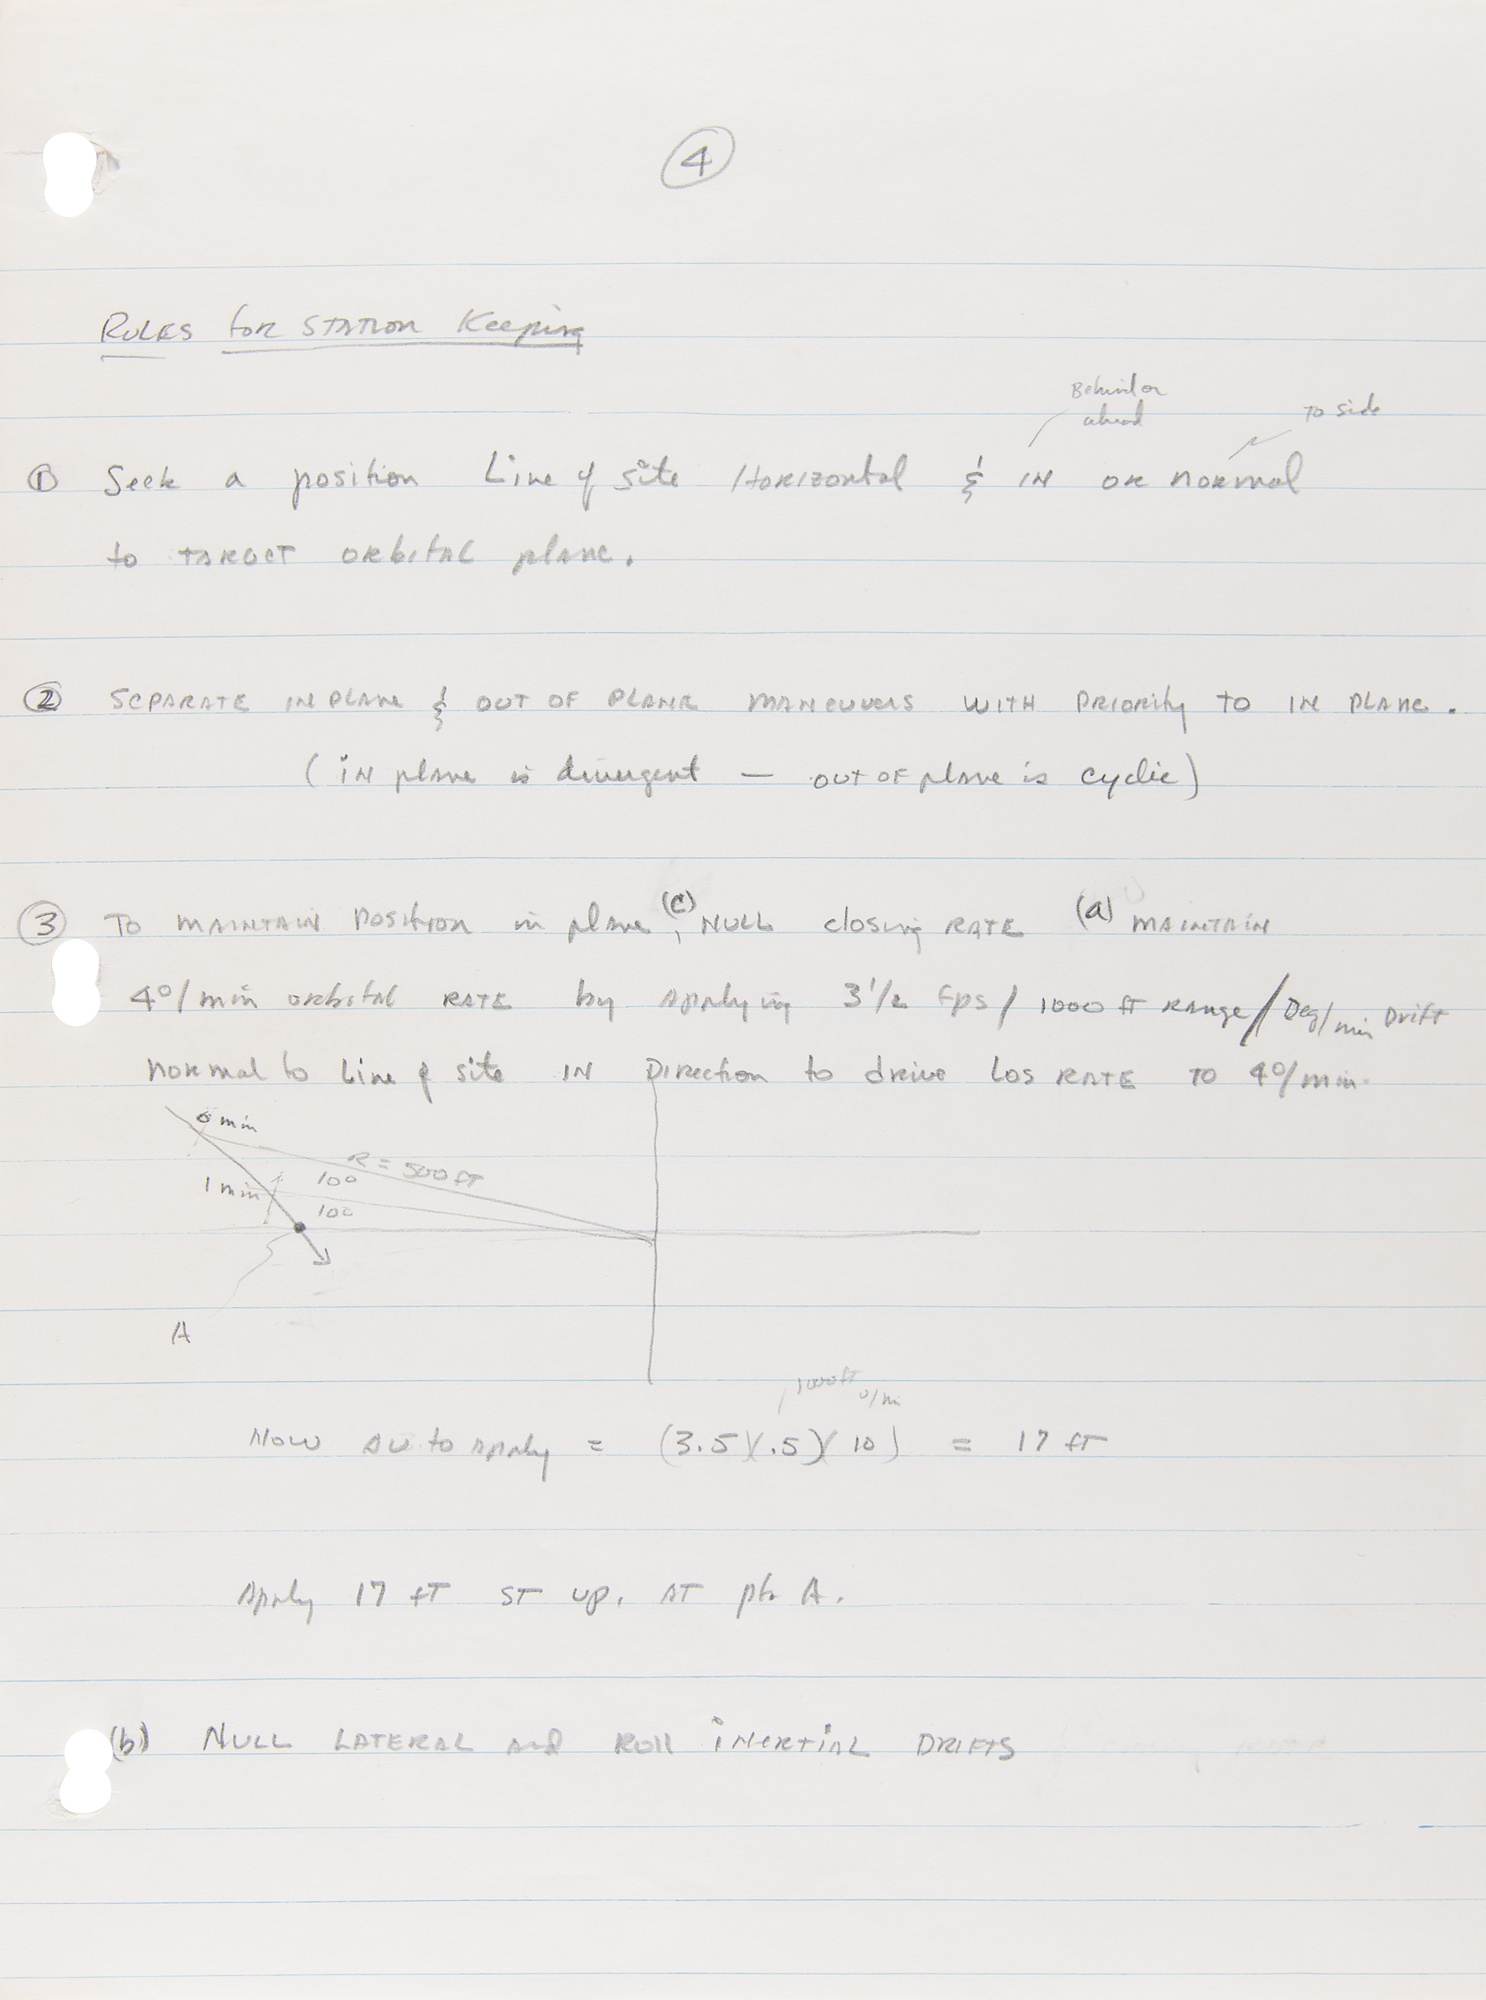 4
RULES for STATION Keeping
Behind or
ahead
To side
① Seek a position Line of site Horizontal & IN or normal
to TARGET orbital plane.
② SEPARATE IN PLANE & OUT OF PLANE MANEUVERS WITH PRIORITY TO IN PLANE.
(IN plane is divergent — OUT OF plane is cyclic)
③ To MAINTAIN POSITION in plane, (c) NULL closing RATE (a) MAINTAIN
4°/min orbital RATE by Applying 3 1/2 fps / 1000 ft RANGE / Deg/min Drift
normal to Line of site IN Direction to drive LOS RATE TO 4°/min.
0 min
R = 500 ft
1 min 10°
10°
A
1000 ft
°/mi
Now ΔV to apply = (3.5)(.5)(10) = 17 ft
Apply 17 ft ST up. AT pt. A.
(b) NULL LATERAL and Roll INERTIAL DRIFTS